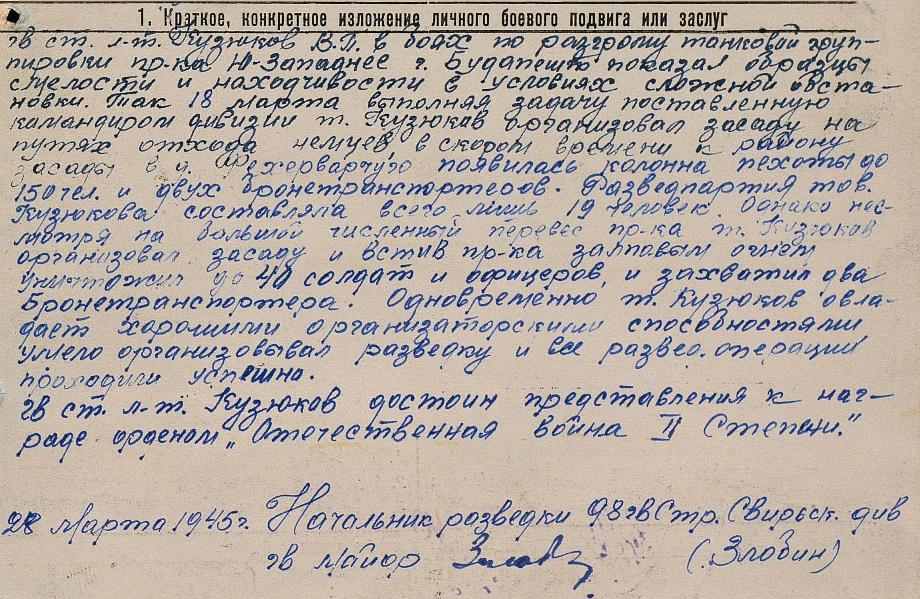 1. Краткое, конкретное изложение личного боевого подвига или заслуг
гв ст. л-т. Кузюков В.П. в боях по разгрому танковой груп-
пировки пр-ка Ю-Западнее г. Будапешт показал образцы
смелости и находчивости в условиях сложной обста-
новки. Так 18 марта выполняя задачу поставленную
командиром дивизии т. Кузюков организовал засаду на
путях отхода немцев, в скором времени к району
засады в д. Фехерварчурго появилась колонна пехоты до
150 чел. и двух бронетранспортеров. Разведпартия тов.
Кузюкова составляла всего лишь 19 человек. Однако нес-
мотря на большой численный перевес пр-ка т. Кузюков
организовал засаду и встетив пр-ка залповым огнем
уничтожил до 40 солдат и офицеров, и захватил два
бронетранспортера. Одновременно т. Кузюков овла-
дает хорошими организаторскими способностями
умело организовывал разведку и все развед. операции
проходили успешно.
гв ст. л-т. Кузюков достоин представления к наг-
раде орденом „Отечественная война II Степени."
28 марта 1945 г. Начальник разведки 98 гв Стр. Свирьск. див
гв майор (Злобин)